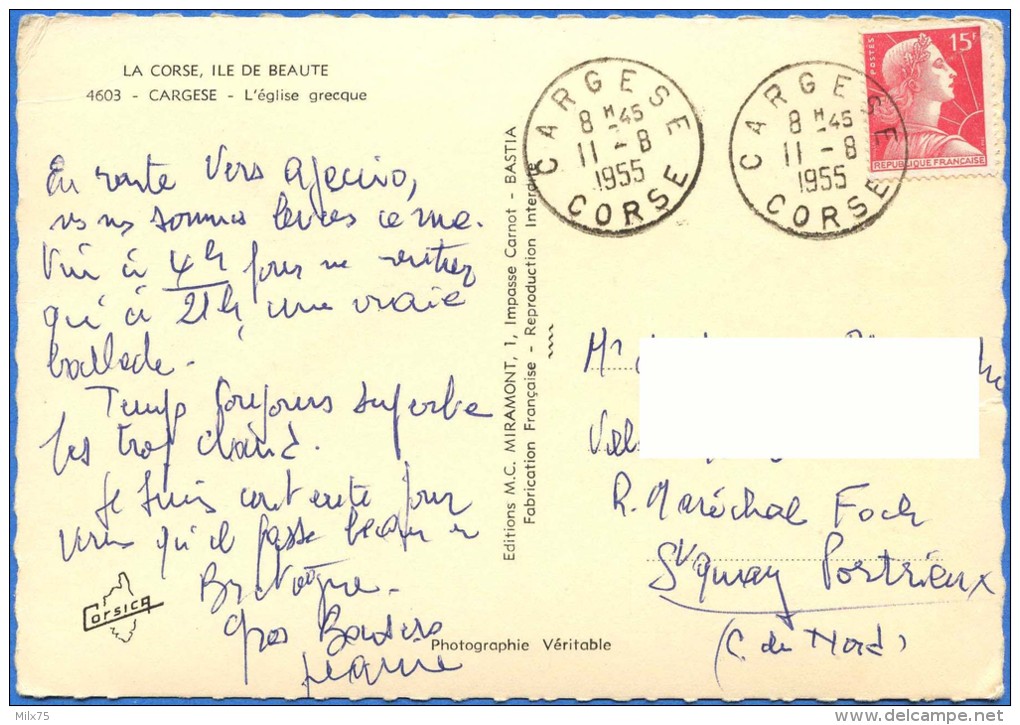 LA CORSE, ILE DE BEAUTE
4603 - CARGESE - L'église grecque
En route vers Ajaccio,
ns ns sommes levées ce ma-
tin à 4h pour ne rentrer
qu'à 21h, une vraie
ballade.
Temps toujours superbe
pas trop chaud.
Je suis contente pour
vous qu'il fasse beau en
Bretagne.
Gros Baisers
Jeanne
Corsica
Editions M.C. MIRAMONT, 1, Impasse Carnot - BASTIA
Fabrication Française - Reproduction Interdite
Photographie Véritable
CARGESE
8 H 45
11 - 8
1955
CORSE
CARGESE
8 H 45
11 - 8
1955
CORSE
POSTES
15F
REPUBLIQUE FRANÇAISE
Mr
R. Maréchal Foch
St Quay Portrieux
(C. du Nord)
Milx75
www.delcampe.net